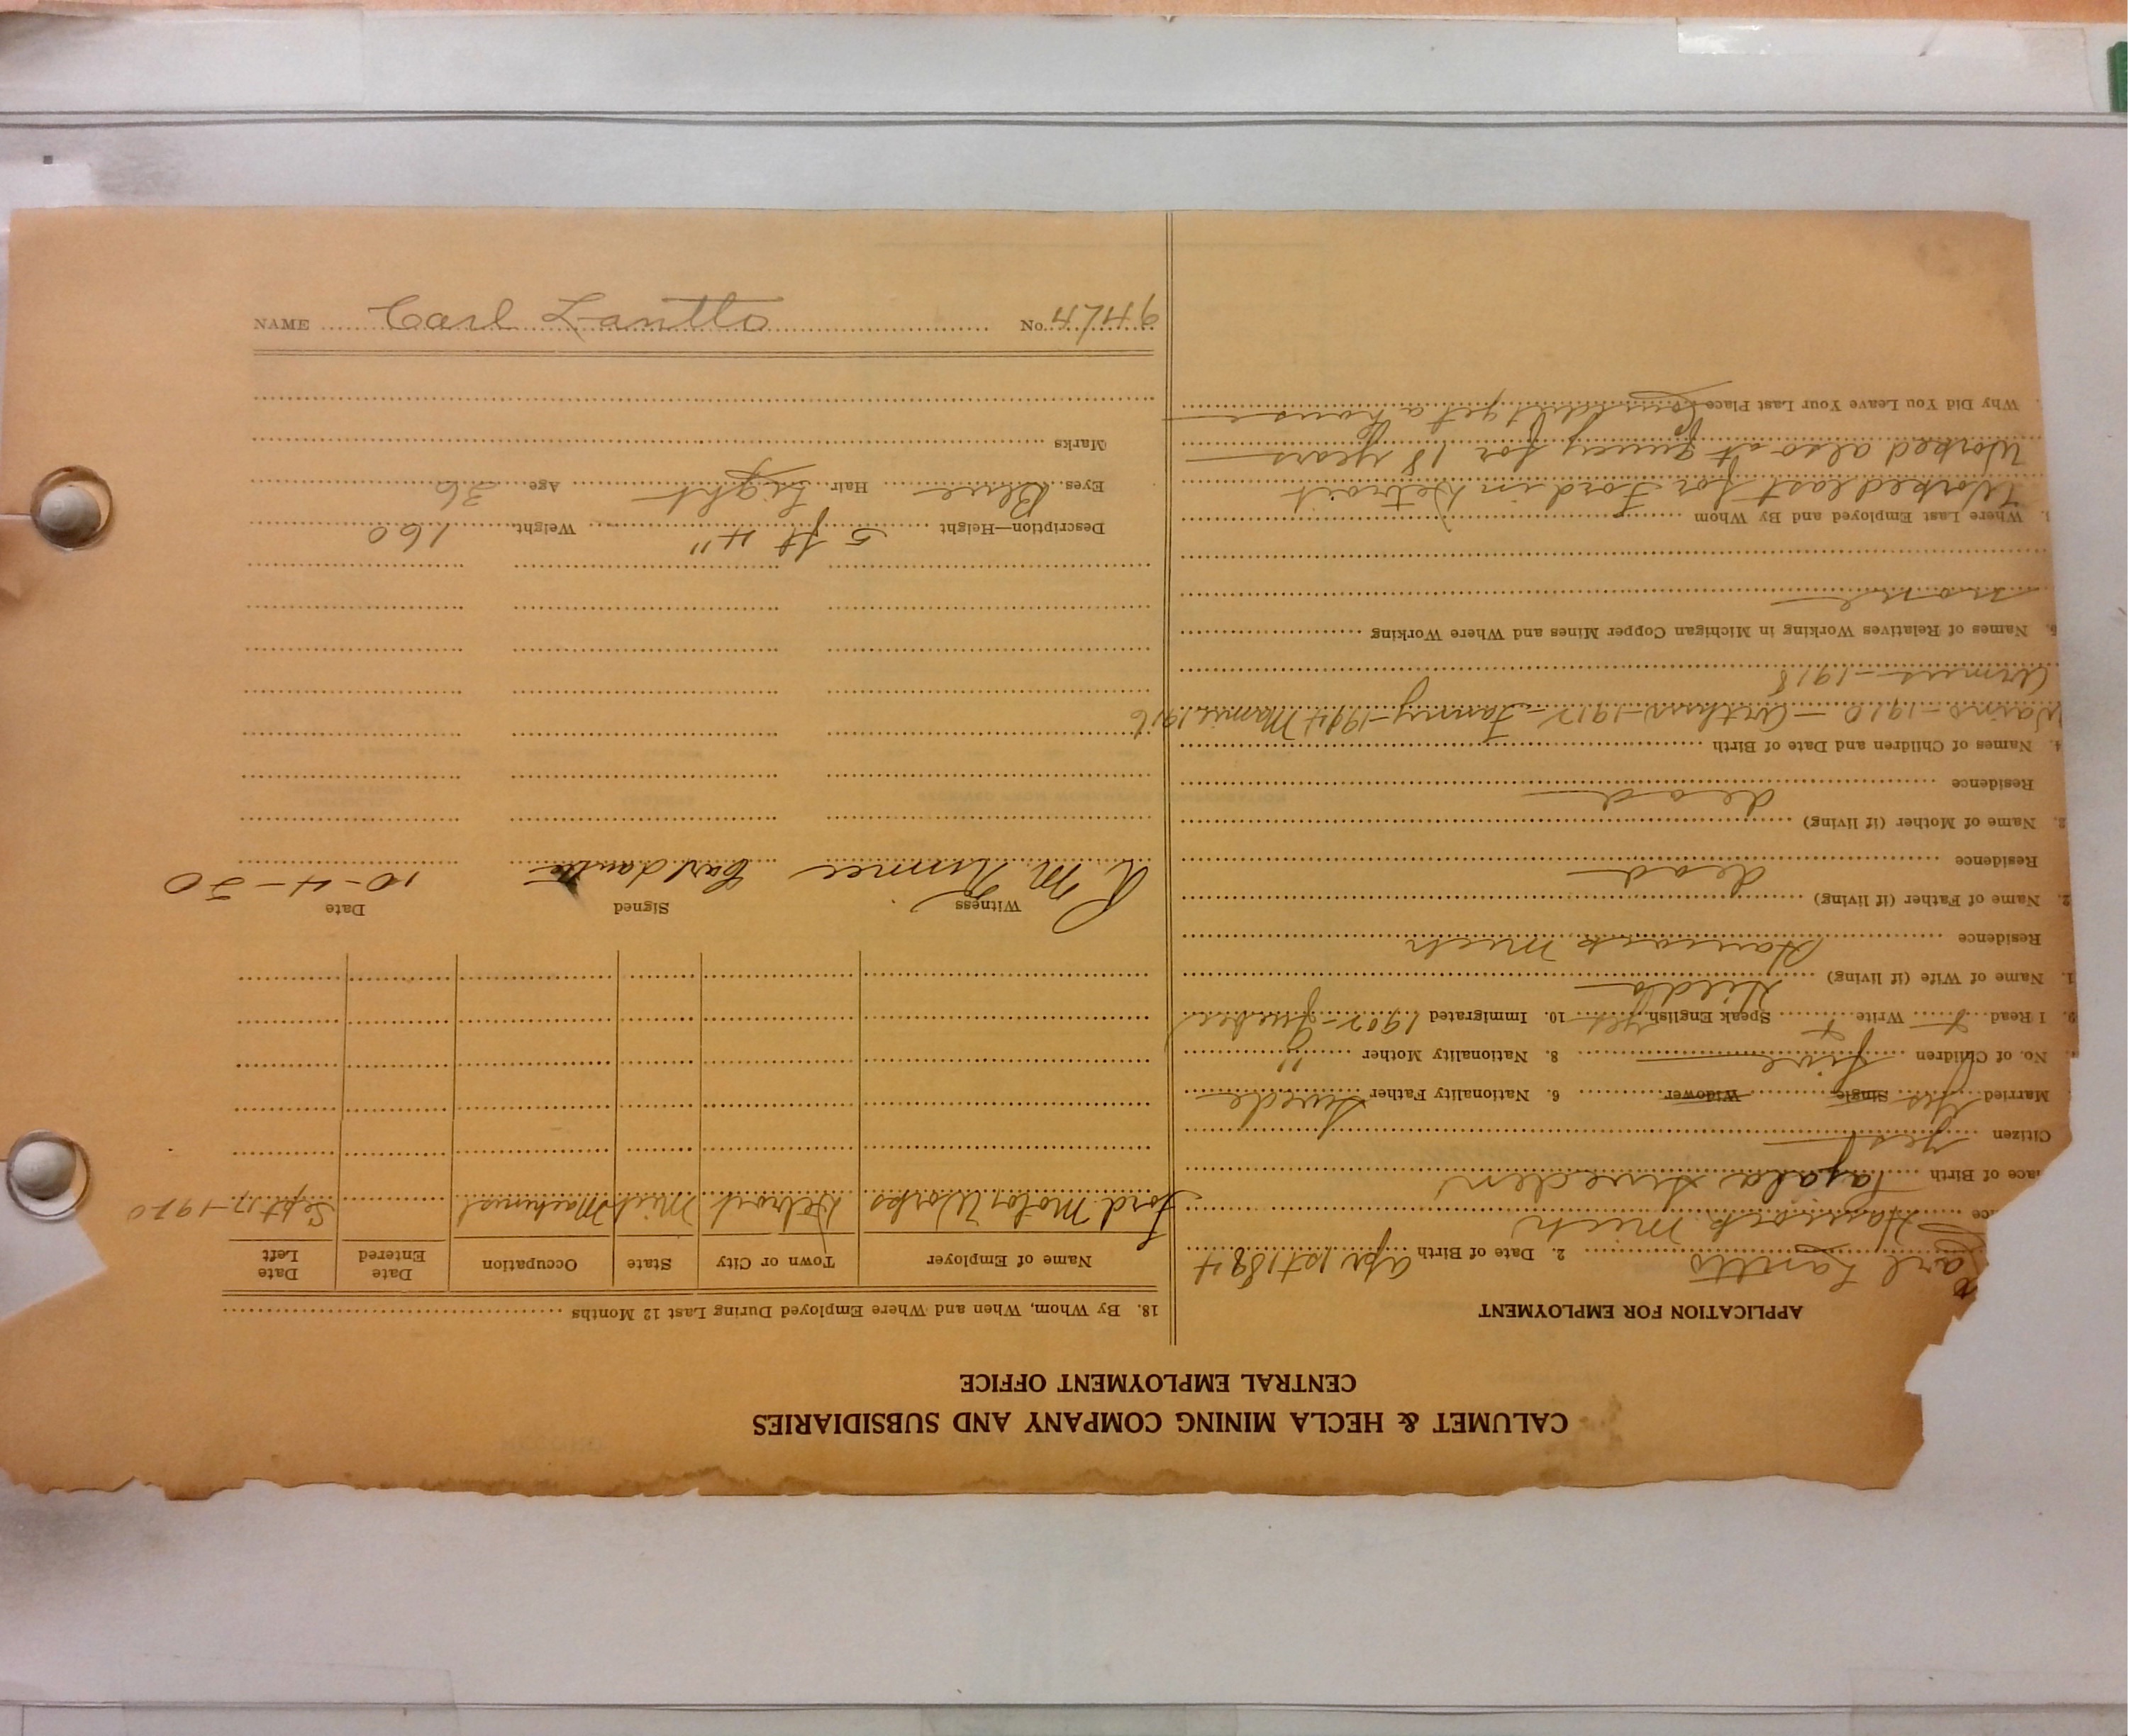 CALUMET & HECLA MINING COMPANY AND SUBSIDIARIES
CENTRAL EMPLOYMENT OFFICE
APPLICATION FOR EMPLOYMENT
Carl Lantto 2. Date of Birth Apr 1st 1884
ce Hancock Mich
ace of Birth Pajala Sweden
Citizen Yes
Married Yes Single Widower 6. Nationality Father Swede
No. of Children five 8. Nationality Mother "
9. I Read + Write + Speak English yes 10. Immigrated 1902 - Quebec
1. Name of Wife (if living) Hilda
Residence Hancock Mich
2. Name of Father (if living) dead
Residence
2. Name of Mother (if living) dead
Residence
4. Names of Children and Date of Birth
Waino - 1910 - Arthur - 1912 - Fanny - 1914 Mamie 1916
- 1918
5. Names of Relatives Working in Michigan Copper Mines and Where Working
none
1. Where Last Employed and By Whom
Worked last for Ford in Detroit
Worked also at Quincy for 18 years
Why Did You Leave Your Last Place Couldn't get a house
18. By Whom, When and Where Employed During Last 12 Months
Name of Employer Town or City State Occupation Date Entered Date Left
Ford Motor Works Detroit Mich Machinist Sept 17 - 1920
Witness Signed Date
Carl Lantto 10-4-20
Description—Height 5 ft 4" Weight 160
Eyes Blue Hair Light Age 36
Marks
NAME Carl Lantto No. 47449